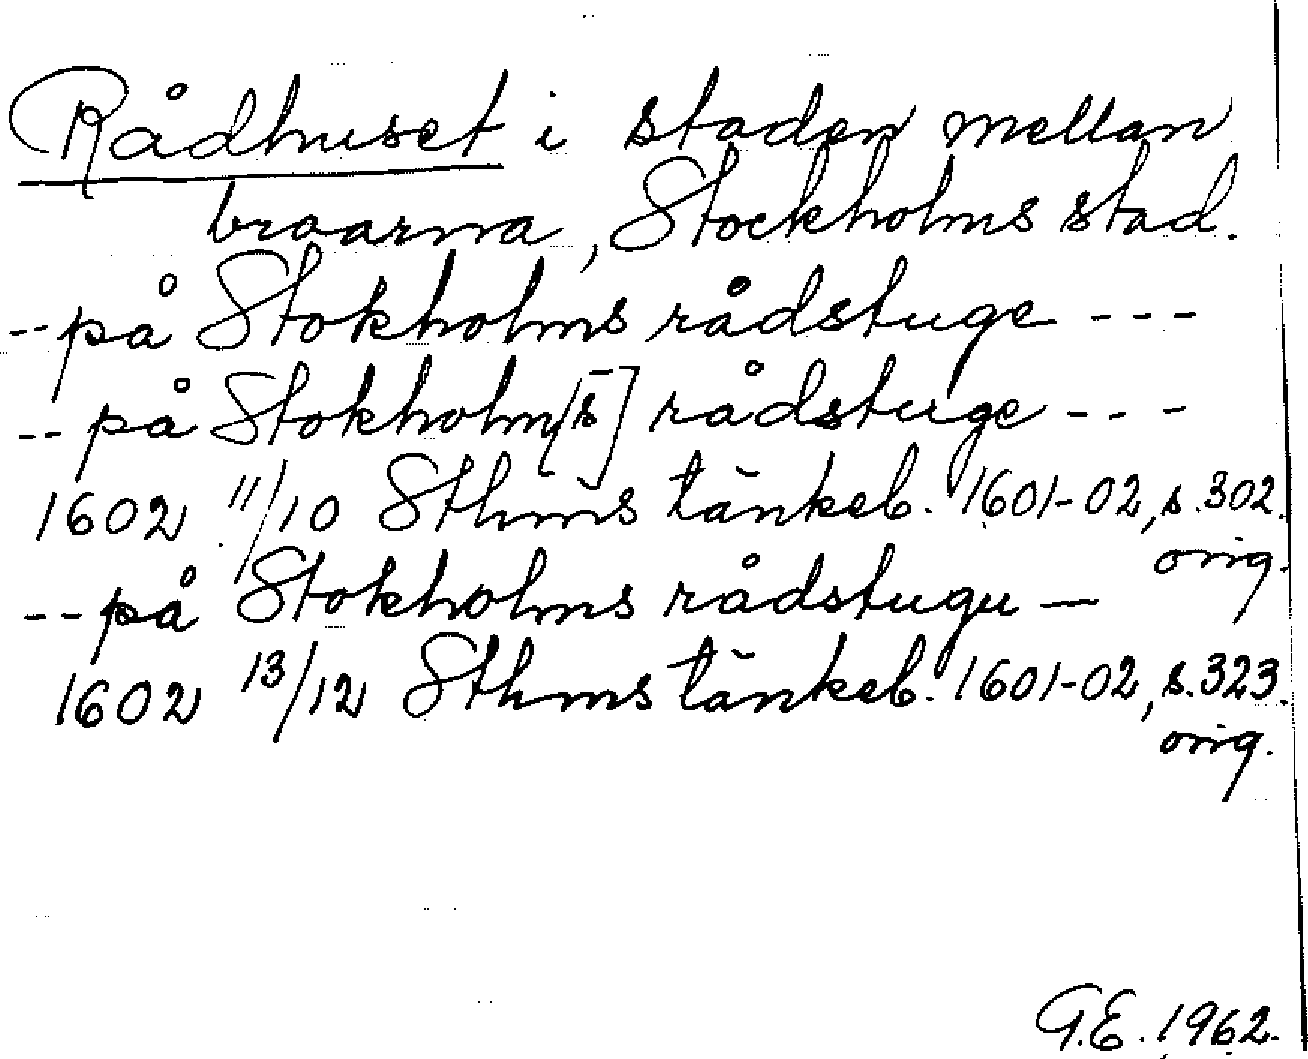 Rådhuset i staden mellan
broarna, Stockholms stad.
--på Stokholms rådstuge ---
--på Stokholm[s] rådstuge ---
1602 11/10 Sthms tänkeb. 1601-02, s. 302.
orig.
--på Stokholms rådstugu —
1602 13/12 Sthms tänkeb. 1601-02, s. 323.
orig.
G.E. 1962.